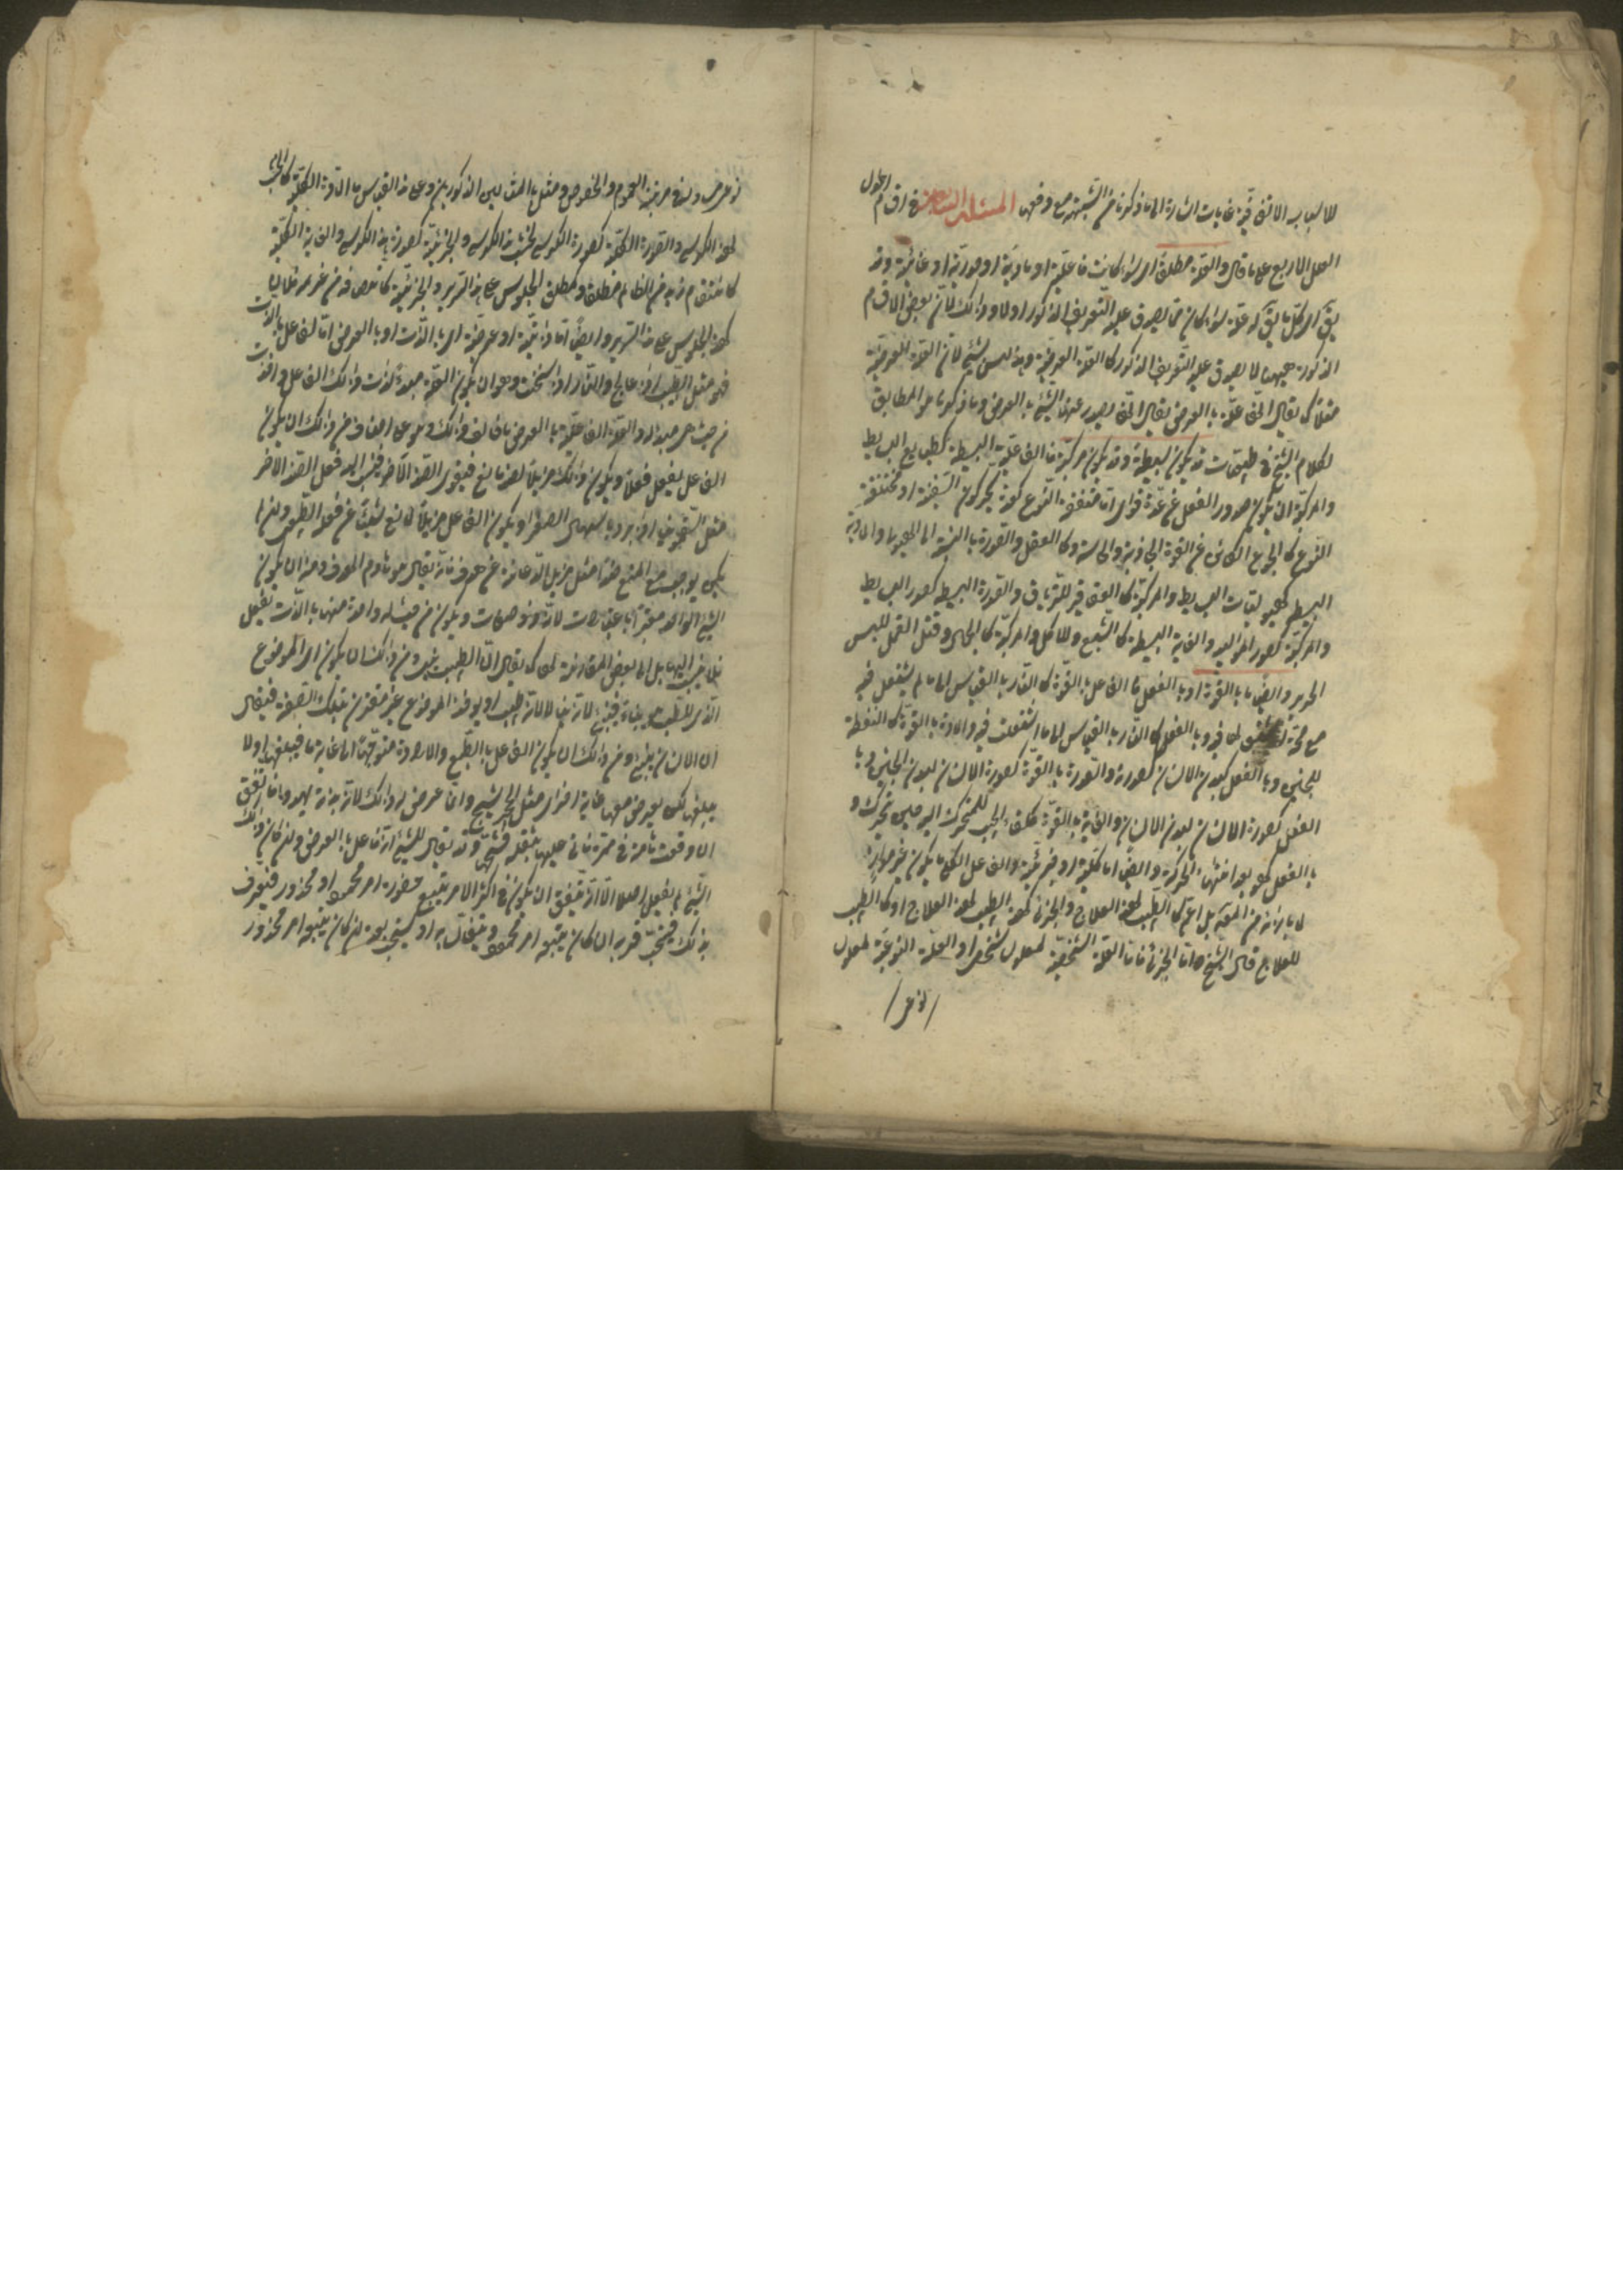 للاسباب الاتفاقية غايات اشارة الى ما ذكرنا من الشبهة مع دفعها المسئلة السادسة في اقسام العلل
العلل الاربع على ما قال والعلة مطلقا اى سواء كانت فاعلية او مادية او صورية او غائية وقد
يق اى كل ما يق له علة سواء كان مما يصدق عليه التعريف المذكور اولا وذلك لان بعض الاقسام
المذكورة ههنا لا يصدق عليه التعريف المذكور كالعلة العرضية وهذا ليس بشئ لان العلة العرضية
مثلا كما يقال انها علة بالعرض يقال انها يصدر عنها الشئ بالعرض وما ذكرنا هو المطابق
لكلام الشيخ في طبيعيات قد يكون بسيطة وقد يكون مركبة فالفاعلية البسيطة كطبايع البسايط
والمركبة ان يكون صدور الفعل عن عدة قوى اما متفقة النوع كعدة يحركون السفينة او مختلفة
النوع كالجوع الكائن عن القوة الجاذبة والحاسة وكالعقل والصورة بالنسبة الى الهيولى والمادية
البسيطة كهيوليات البسايط والمركبة كالعقاقير للترياق والصورة البسيطة كصور البسايط
والمركبة كصور المواليد والغاية البسيطة كالشبع للاكل والمركبة كالجمال وقتل القمل للبس
الحرير وايضا ما بالقوة او بالفعل فالفاعل بالقوة كالنار بالقياس الى ما لم يشتعل فيه
مع صحة لها فيه وبالفعل كالنار بالقياس الى ما اشتعلت فيه والمادة بالقوة كالنطفة
للجنين وبالفعل كبدن الانسان لصورته والصورة بالقوة كصورة الانسان لبدن الجنين وبا
الفعل كصورة الانسان لبدن الانسان والغاية بالقوة كلقاء الحبيب للمتحرك اليه حين تحرك و
بالفعل كهو بعد انتهاء الحركة وايضا اما كلية او جزئية والفاعل الكلى ما يكون غير مواز
لما بازائه من المعلول بل اعم كالطبيب لهذا العلاج والجزئى كهذا الطبيب لهذا العلاج او كالطبيب
للعلاج قال الشيخ اما الجزئى فاما العلة الشخصية لمعلول شخصى او العلة النوعية لمعلول
نوعى
نوعى مساو له في مرتبة العموم والخصوص ومثل بالمثالين المذكورين وعلى هذا القياس المادة الكلية كالخشب
لهذا الكرسى والصورة الكلية كصورة الكرسى لخشب هذا الكرسى والجزئية كصورة هذا الكرسى والغاية الكلية
كانتقام زيد من الظالم مطلقا وكمطلق الجلوس على هذا السرير والجزئية كانتصافه من غريمه فلان
كهذا الجلوس على هذا السرير وايضا اما ذاتية او عرضية اى بالذات او بالعرض اما الفاعل بالذات
فهو مثل الطبيب اذا عالج والنار اذا سخنت وهو ان يكون العلة مبدأ لذات ذلك الفعل واخذت
من حيث هى مبدأ له والعلة الفاعلية بالعرض ما خالف ذلك وهو على اصناف من ذلك ان يكون
الفاعل يفعل فعلا ويكون ذلك مزيلا لضد مانع فيقوى الضد الآخر فينسب اليه فعل الضد الآخر
مثل السقمونيا اذا برد باسهال الصفراء او يكون الفاعل مزيلا لمانع شيئا عن فعله الطبيعى وان لم
يكن يوجب مع المنع ضدا مثل مزيل الدعامة عن هدف فانه يقال هو هادم الهدف ومنه ان يكون
الشئ الواحد معتبرا باعتبارات لانه ذو صفات ويكون من حيث له واحدة منها مبدأ بالذات لفعل
فلا ينسب اليها بل الى بعض المقارنة لها كما يقال ان الطبيب يبنى ومن ذلك ان يكون اى الموضوع
الذى للطب هو بناء فيبنى لانه بناء لا لانه طبيب او يوخذ الموضوع غير مقترن بتلك الصفة فيقال
ان الانسان يبنى ومن ذلك ان يكون الفاعل بالطبع والارادة متوجها الى غاية ما فيبلغها او لا
يبلغها لكن يعرض معها غاية اخرى مثل الحجر يشج وانما عرض له ذلك لانه بذاته يهبط فاتفق
ان وقعت هامة في ممره فاتى عليها بثقله فشجها وقد يقال للشئ انه فاعل بالعرض وان كان ذلك
الشئ لم يفعل اصلا الا انه يتفق ان يكون في اكثر الامر يتبع حضوره امر محمود او محذور فيعرف
بذلك فيستحب قربه ان كان يتبعه امر محمود ويتفأل به او يستحب بعده ان كان يتبعه امر محذور